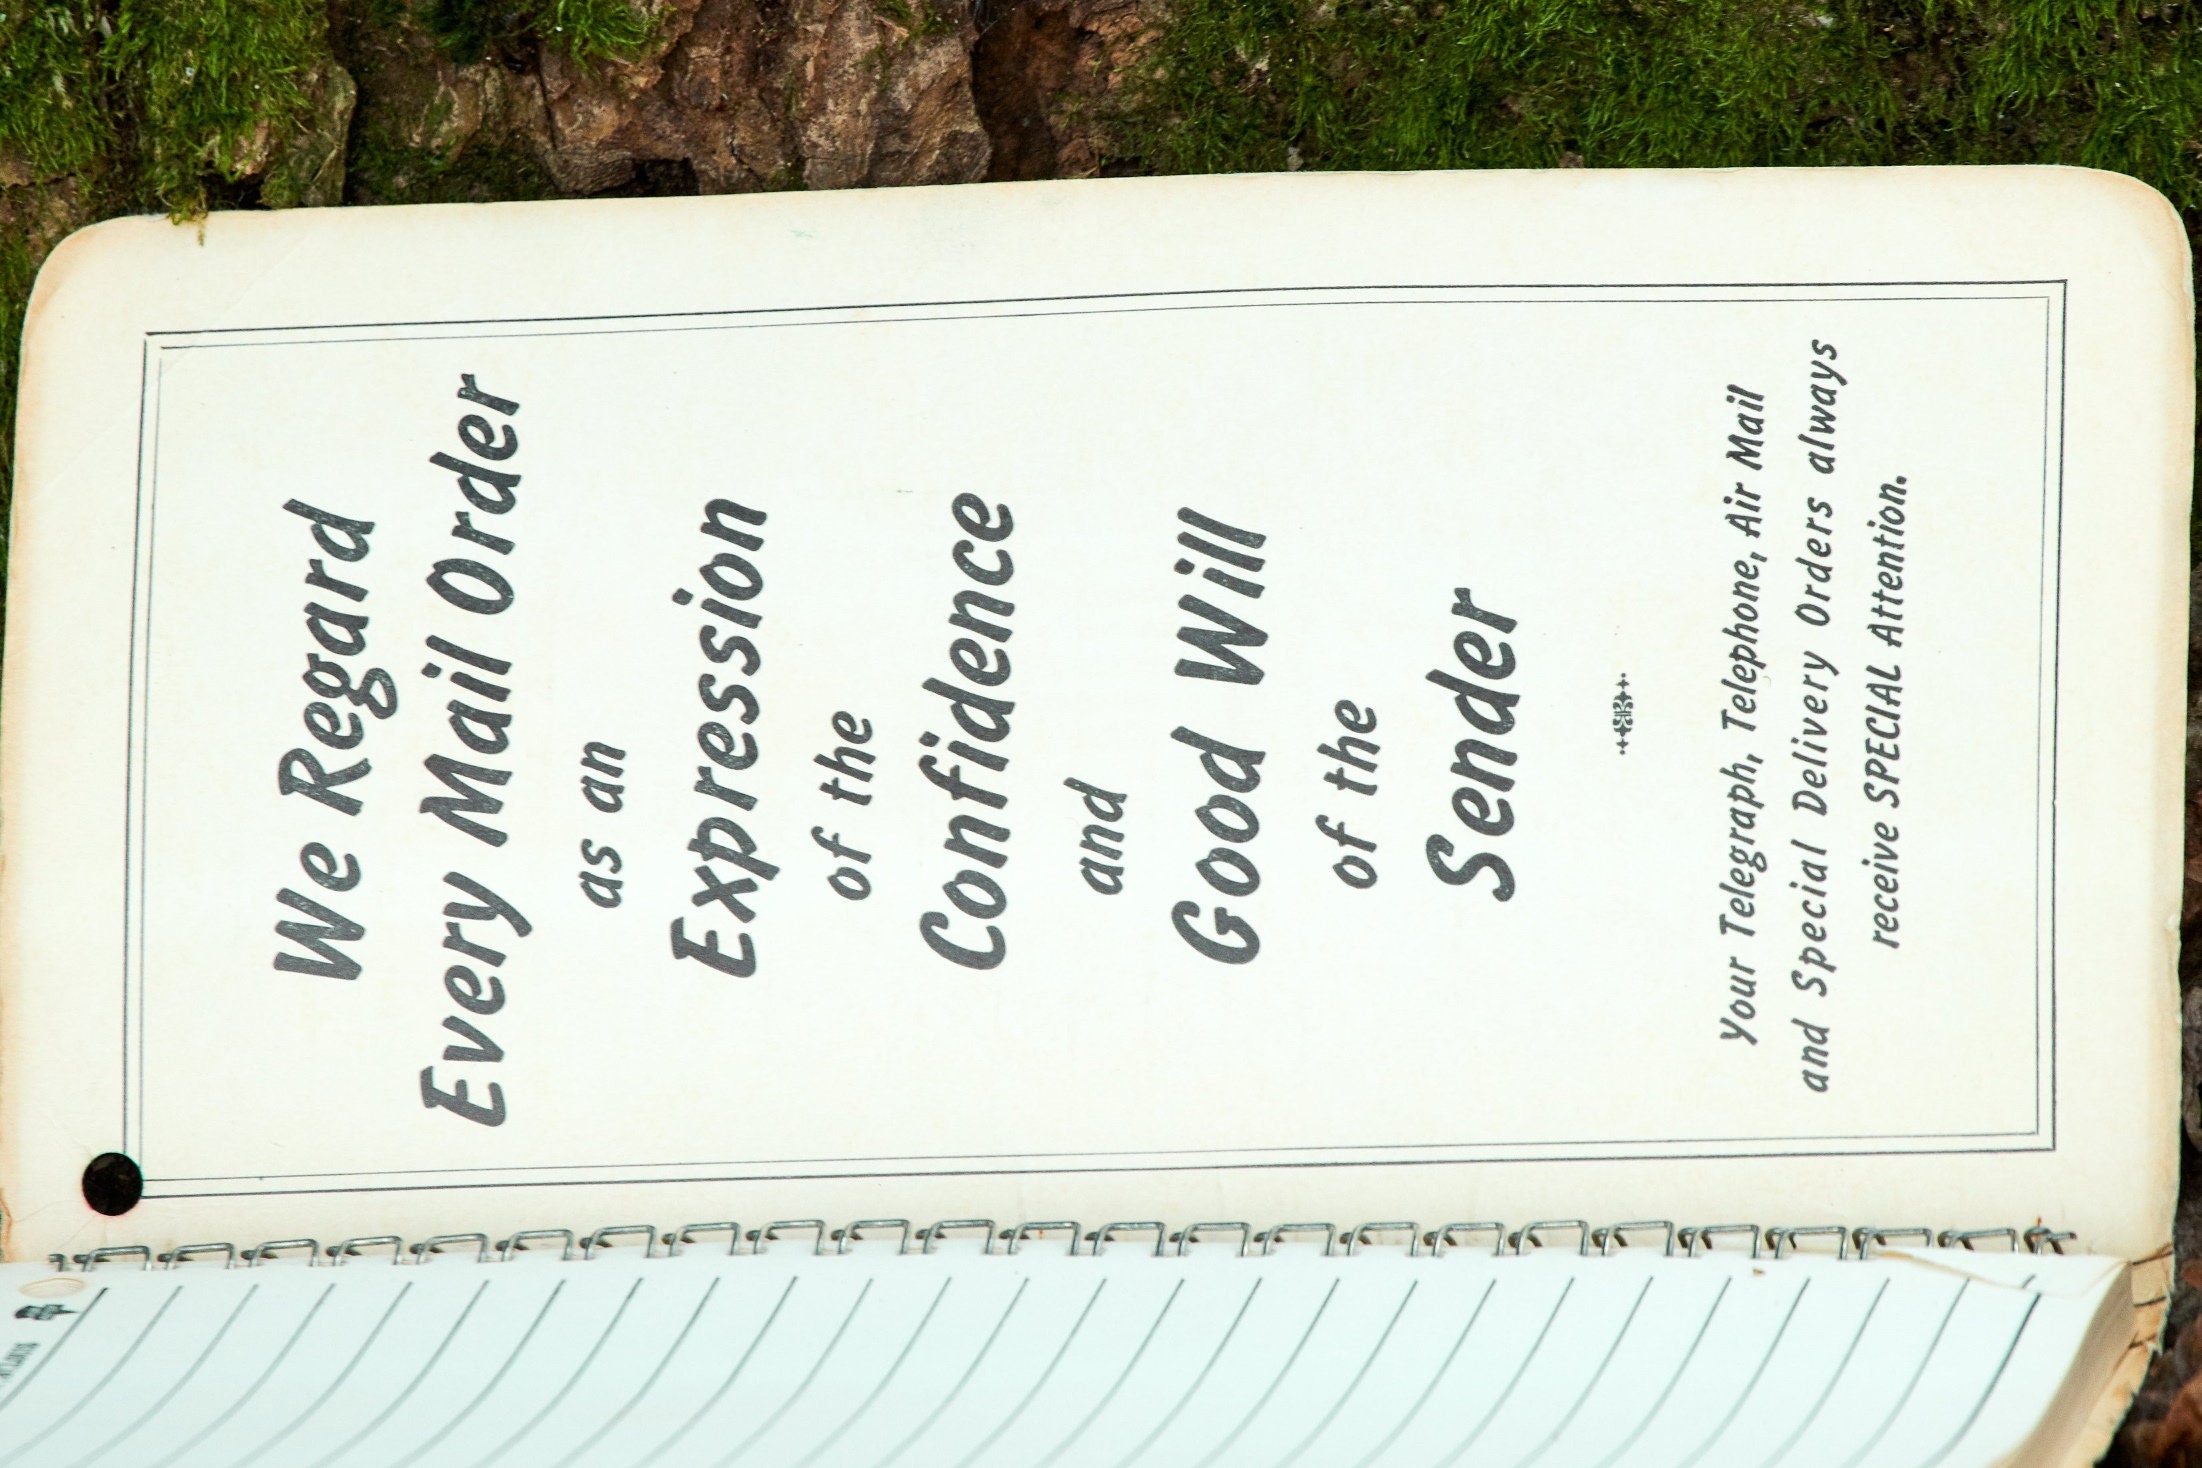 We Regard
Every Mail Order
as an
Expression
of the
Confidence
and
Good Will
of the
Sender
Your Telegraph, Telephone, Air Mail
and Special Delivery Orders always
receive SPECIAL Attention.